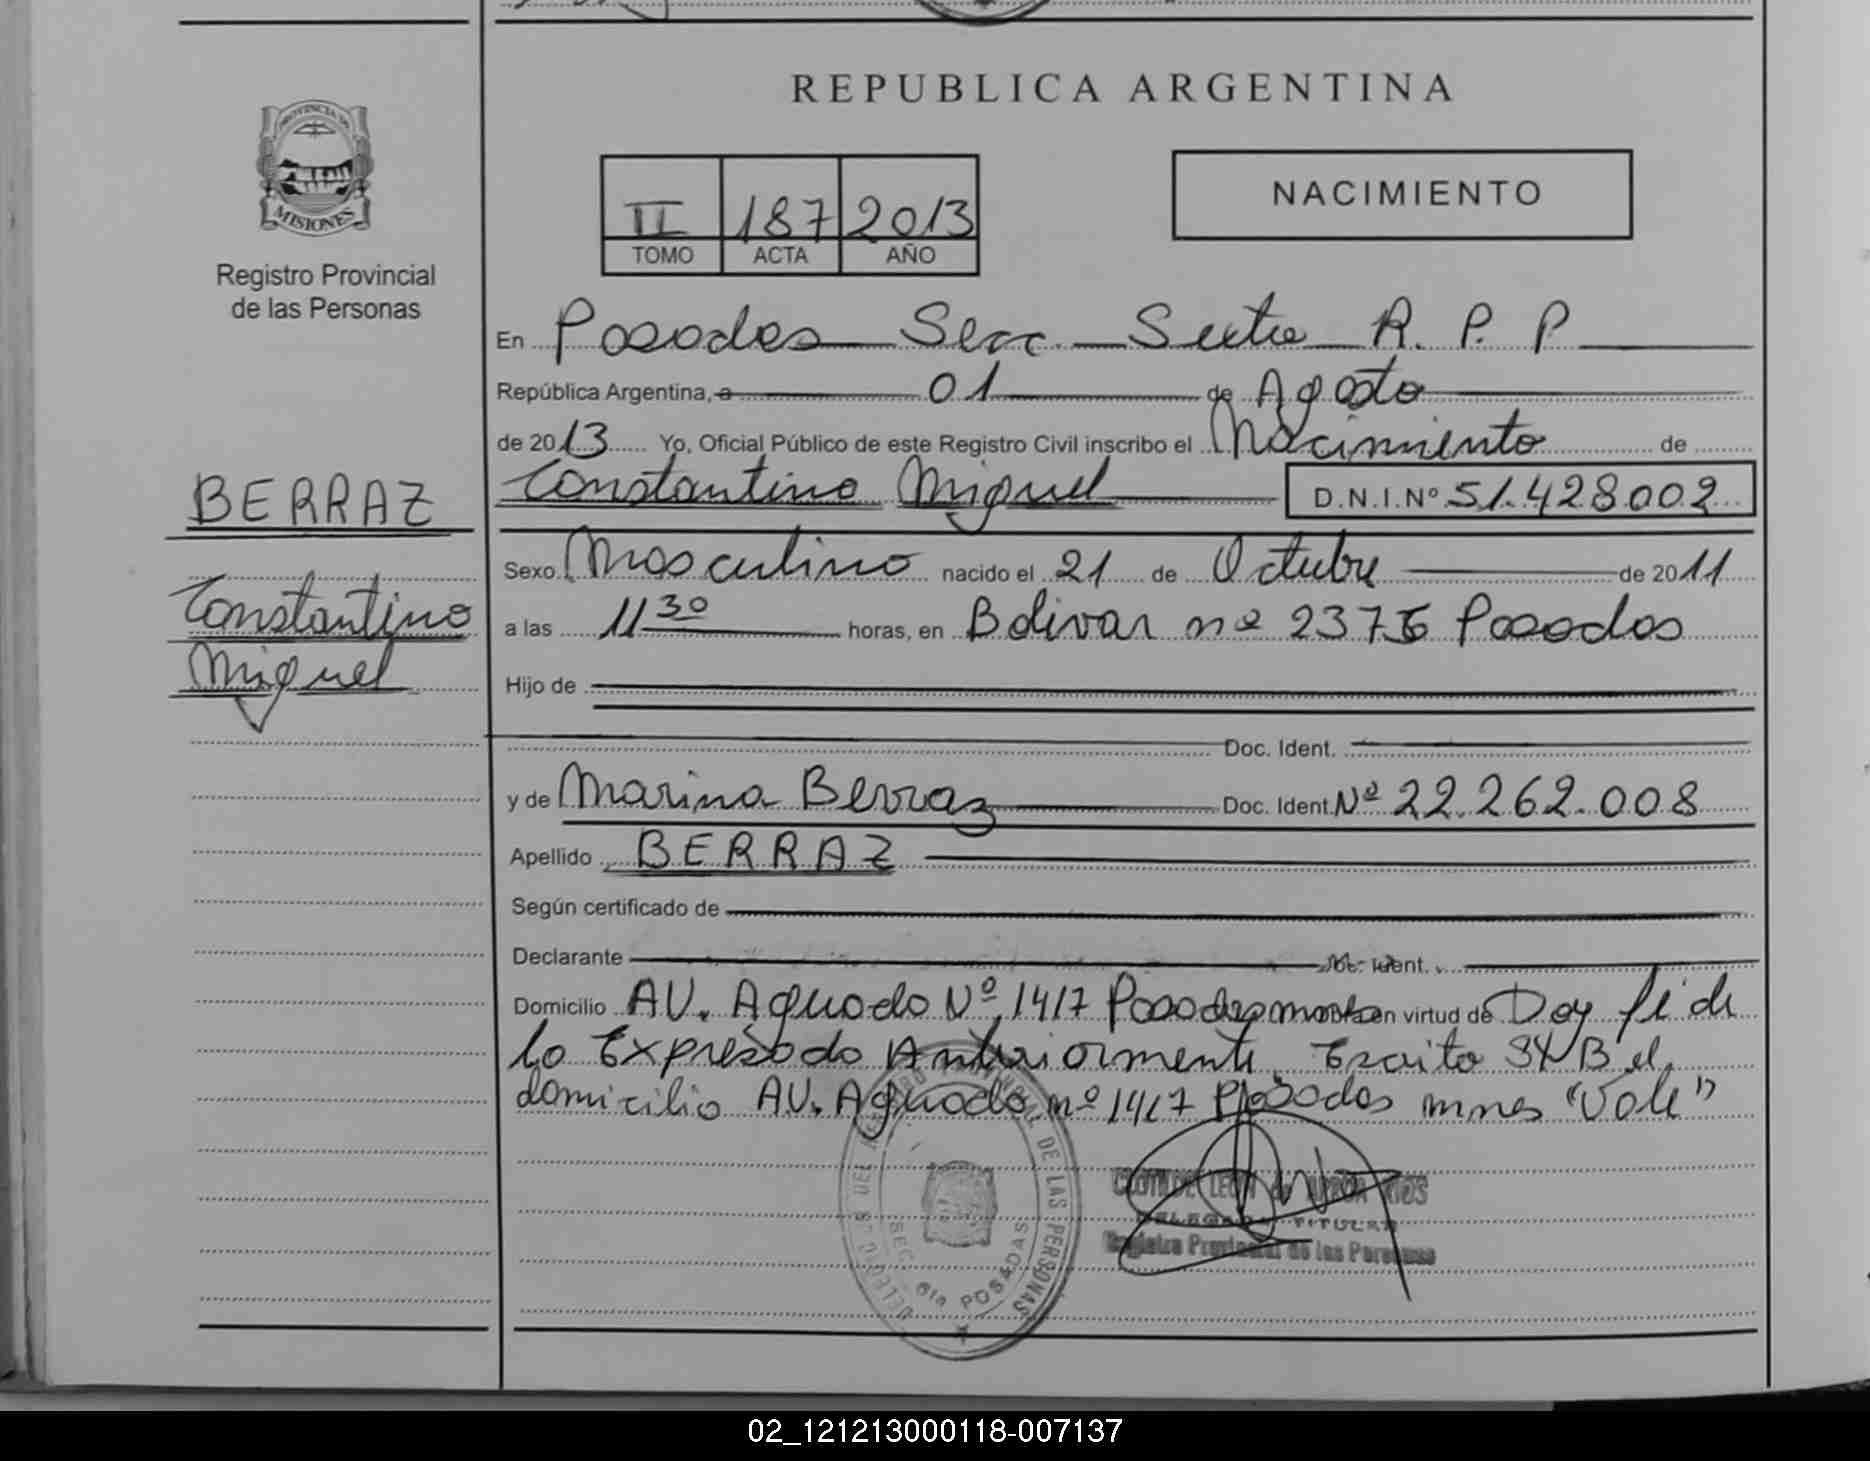 REPUBLICA ARGENTINA
PROVINCIA DE
MISIONES
Registro Provincial
de las Personas
II 187 2013
TOMO ACTA AÑO
NACIMIENTO
En Posadas Secc. Sexta R. P. P
República Argentina, a 01 de Agosto
de 2013 Yo, Oficial Público de este Registro Civil inscribo el Nacimiento de
BERRAZ
Constantino Miguel D.N.I.Nº 51.428.002
Sexo Masculino nacido el 21 de Octubre de 2011
Constantino
Miguel
a las 11 30 horas, en Bolivar nº 2376 Posadas
Hijo de
Doc. Ident.
y de Marina Berraz Doc. Ident. Nº 22.262.008
Apellido BERRAZ
Según certificado de
Declarante
Domicilio AV. Aguado Nº 1417 Posadas en virtud de Doy fe de
lo Expresado Anteriormente. Escrito S/ B el
domicilio AV. Aguado nº 1417 Posadas mnes "Vale"
DE LAS PERSONAS
SEC. 6ta POSADAS
DELEGADA TITULAR
Registro Provincial de las Personas
02_121213000118-007137